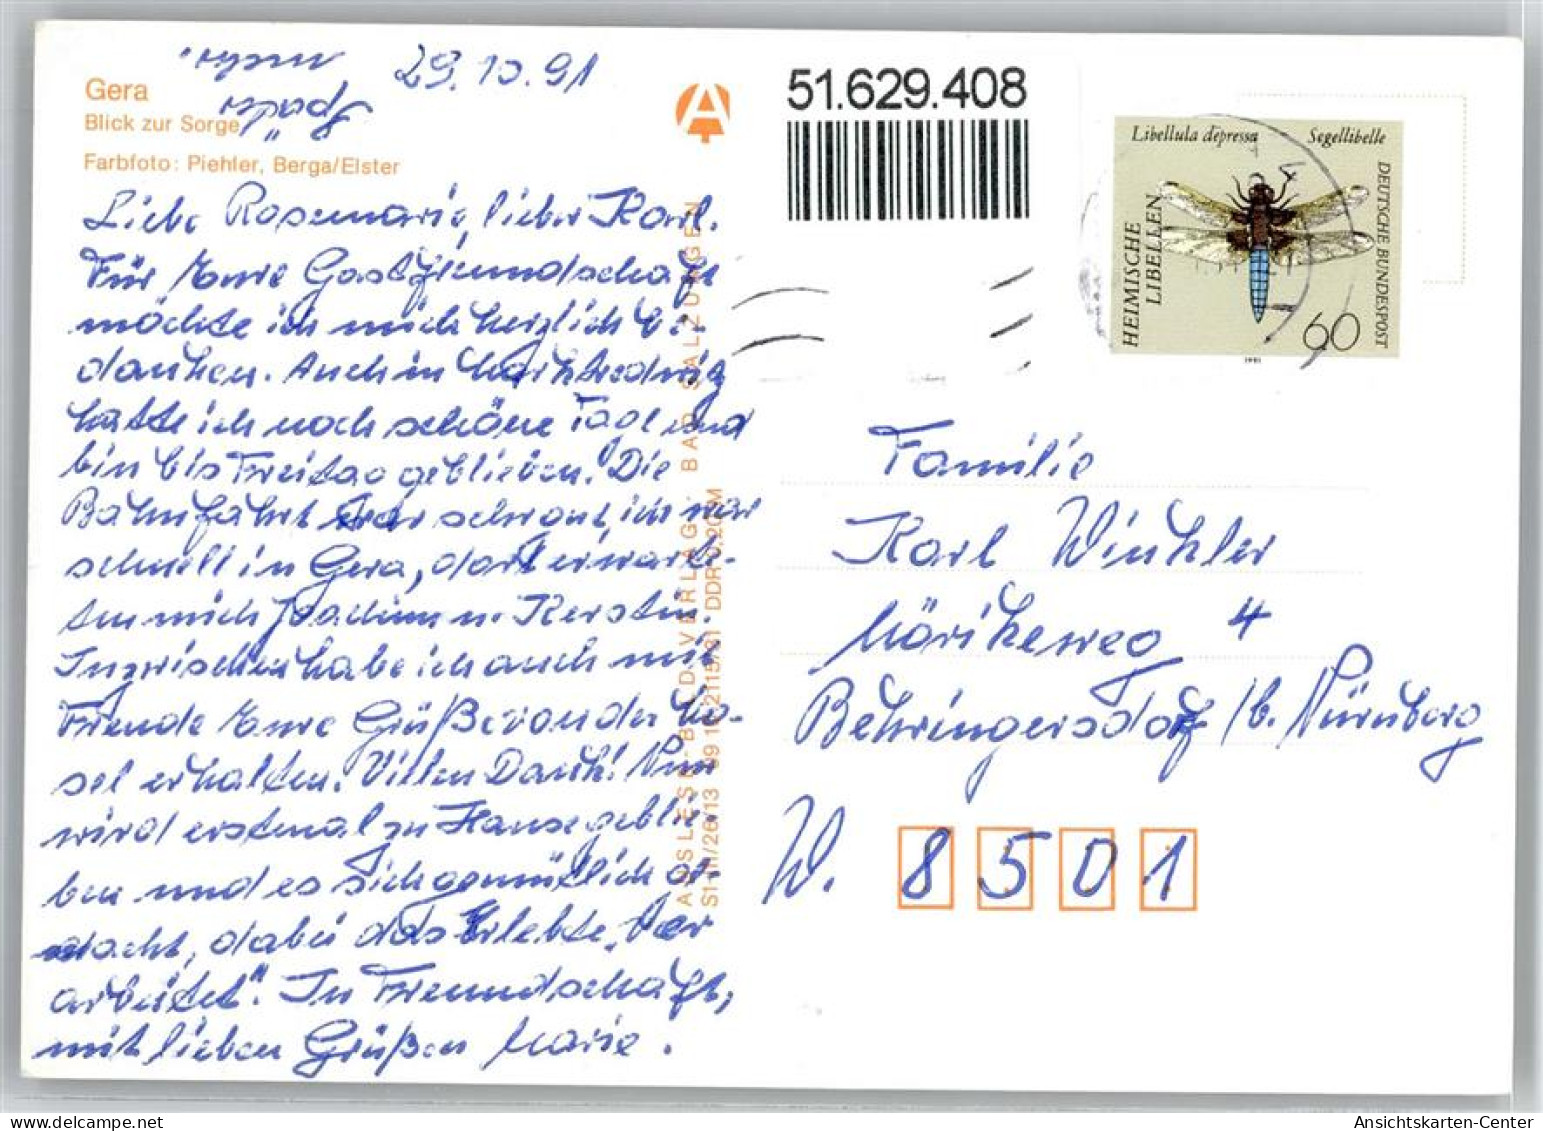 Gera
Blick zur Sorge
Farbfoto: Piehler, Berga/Elster
29.10.91
Liebe Rosemarie, lieber Karl.
Für Eure Gastfreundschaft
möchte ich mich herzlich be-
danken. Auch in Marktredwitz
hatte ich noch schöne Tage und
bin bis Freitag geblieben. Die
Bahnfahrt war sehr gut, ich war
schnell in Gera, dort erwarte-
ten mich Joachim u. Kerstin.
Inzwischen habe ich auch mit
Freude Eure Grüße von der Mo-
sel erhalten. Vielen Dank! Nun
wird erstmal zu Hause geblie-
ben und es sich gemütlich ge-
macht, dabei das Erlebte „ver-
arbeitet“. In Freundschaft,
mit lieben Grüßen Marie.
AUSLESE-BILD-VERLAG BAD SALZUNGEN
51.629.408
Libellula depressa Segellibelle
HEIMISCHE
LIBELLEN
DEUTSCHE BUNDESPOST
60
1991
Familie
Karl Winkler
Mörikeweg 4
Behringersdorf / b. Nürnberg
W. 8501
Ansichtskarten-Center